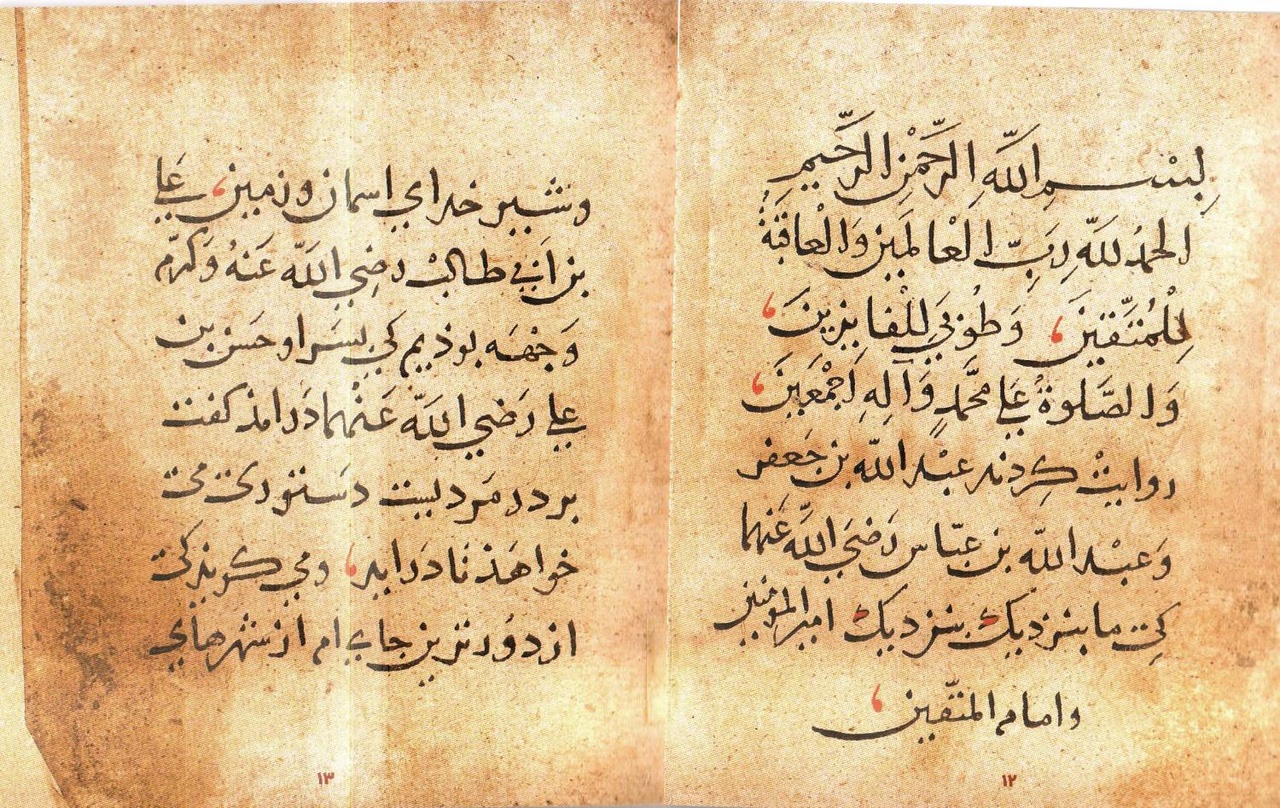 بِسْمِ اللَّهِ الرَّحْمٰنِ الرَّحِيمِ
الحمدُ للَّهِ رَبِّ الْعالَمين وَالْعاقِبَةُ
لِلْمُتَّقينَ، وَطُوبَي لِلْفايزينَ،
وَالصَّلوةُ عَلي محمَّدٍ وَآلِهِ اَجْمَعينَ،
روایتْ کِردند عبْد اللّه بن جَعفر
وَعبْد اللّه بن عبّاس رَضيَ اللَّه عَنهما
کِی ما بنزدیک بنزدیک امیر المؤمنین
وامام المتّقین،
۱۲
وشیر خدای اسمان وزمین، عَلي
بن اَبي طالبْ رضِي اللَّه عَنهُ وَکرّم
وَجْهَه بوذیم کی پسَر او حَسَن بن
علي رَضي اللَّه عَنْهما دَرامذ کفت
بر در مَردیست دَستوری می
خواهَذ تا دَرایذ، ومي کویذ کی
از دوُرترین جاي ام از شهرهاي
۱۳